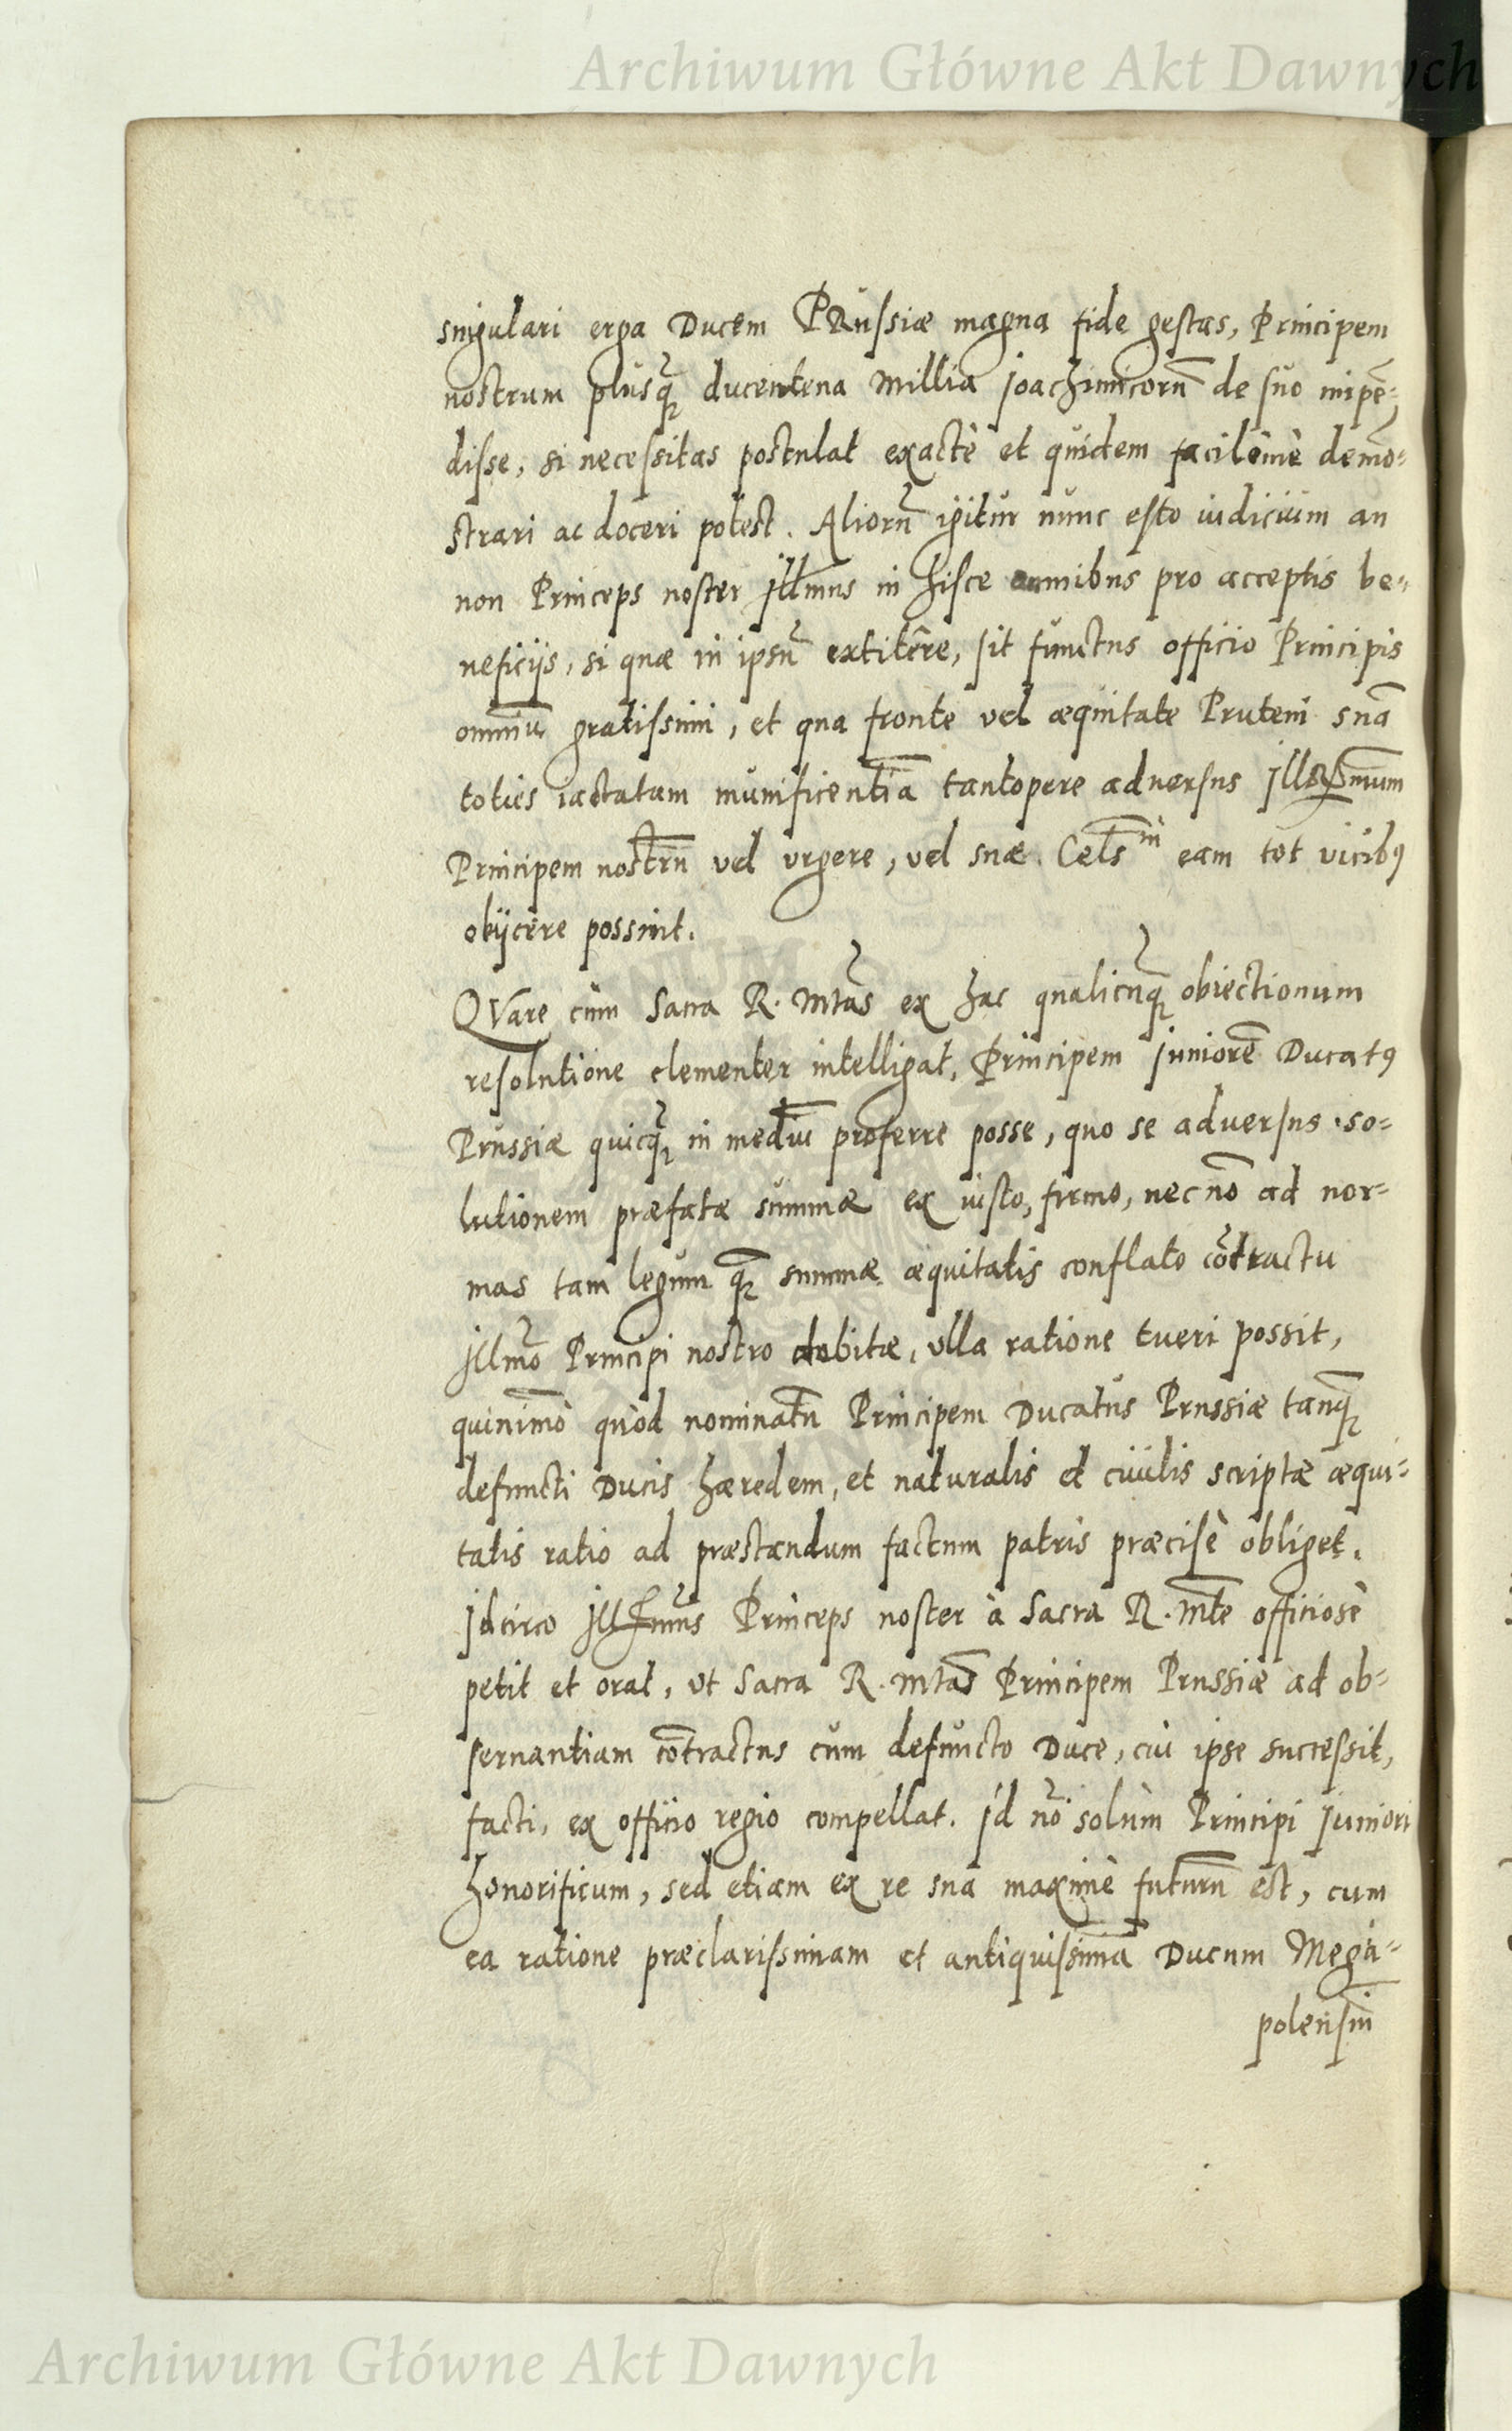 Archiwum Główne Akt Dawnych
singulari erga Ducem Prussiæ magna fide gestas, Principem
nostrum plusq̃ ducentena Millia Joachimicorũ de suo impẽ-
disse, si necessitas postulat exactè et quidem facilimè demõ-
strari ac doceri potest. Aliorũ igitur nunc esto iudicium an
non Princeps noster Illmus in hisce omnibus pro acceptis be-
neficijs, si quæ in ipsũ extitêre, sit functus officio Principis
omniũ gratissimi, et qua fronte vel æquitate Pruteni suã
toties iactatam munificentiã tantopere aduersus Illmum
Principem nostrũ vel vrgere, vel suæ Cels^ni eam tot vicibꝰ
obijcere possint.
QVare cùm Sacra R. Mtas ex hac qualicunq̃ obiectionum
resolutione clementer intelligat, Principem Juniorẽ Ducatꝰ
Prussiæ quicq̃ in mediũ proferre posse, quo se aduersus so-
lutionem præfatæ summæ ex iusto, firmo, nec nõ ad nor-
mas tam legum q̃ summæ æquitatis conflato cõtractu
Illmo Principi nostro debitæ, vlla ratione tueri possit,
quinimò quòd nominatũ Principem Ducatus Prussiæ tanq̃
defuncti Ducis hæredem, et naturalis et ciuilis scriptæ æqui-
tatis ratio ad præstandum factum patris præcisè obliget.
Idcirco Illmus Princeps noster à Sacra R. Mte officiosè
petit et orat, vt Sacra R. Mtas Principem Prussiæ ad ob-
seruantiam cõtractus cum defuncto Duce, cui ipse successit,
facti, ex officio regio compellat. Id nõ solùm Principi Juniori
honorificum, sed etiam ex re sua maximè futurũ est, cum
ea ratione præclarissimam et antiquissimã Ducum Mega-
polensiũ
Archiwum Główne Akt Dawnych